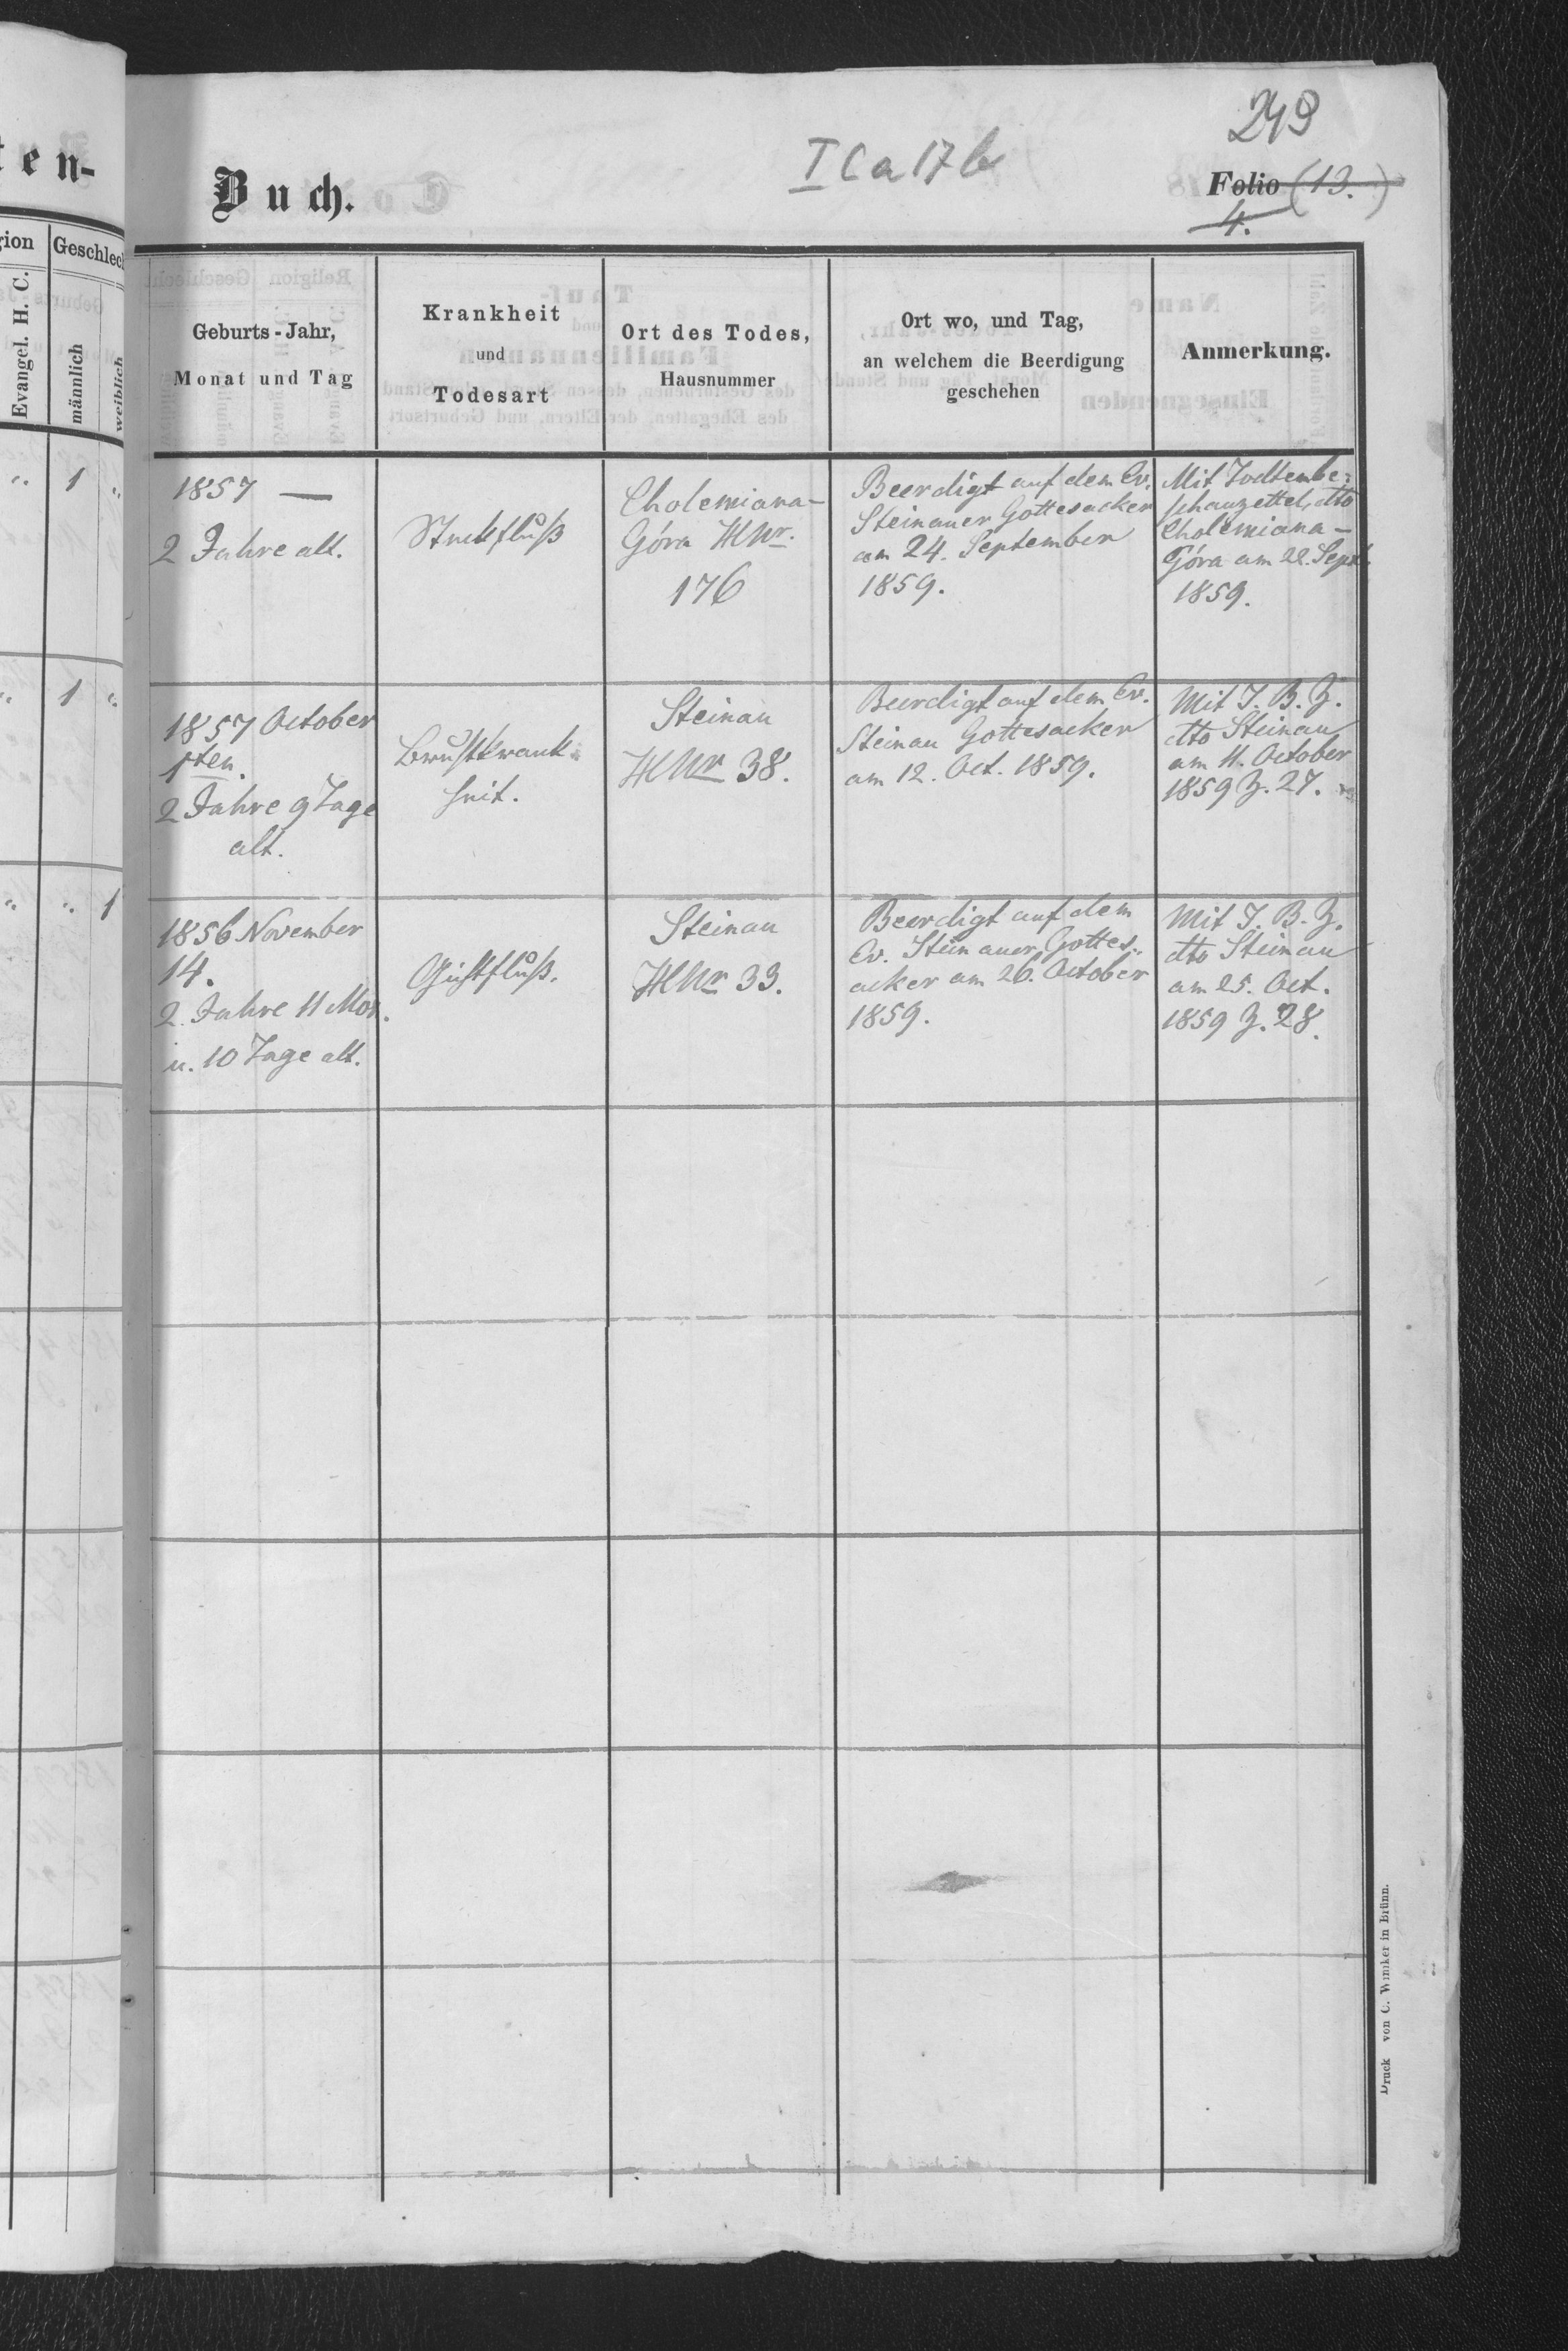 249
I C a 17 b
ten-
Buch.
Folio (13.)
4.
gion
Geschlech
Evangel. H. C.
männlich
weiblich
Geburts-Jahr,
Monat und Tag
Krankheit
und
Todesart
Ort des Todes,
Hausnummer
Ort wo, und Tag,
an welchem die Beerdigung
geschehen
Anmerkung.
" 1 "
1857 —
2 Jahre alt.
Stickfluß
Cholewiana-
Góra HNr.
176
Beerdigt auf dem Ev.
Steinauer Gottesacker
am 24. September
1859.
Mit Todtenbe=
schauzettel, dto
Cholewiana-
Góra am 22. Sept.
1859.
" 1 "
1857 October
1ten.
2 Jahre 9 Tage
alt.
Brustkrank=
heit.
Steinau
HNr 38.
Beerdigt auf dem Ev.
Steinau Gottesacker
am 12. Oct. 1859.
Mit T. B. Z.
dto Steinau
am 11. October
1859 Z. 27.
" " 1
1856 November
14.
2. Jahre 11 Mon.
u. 10 Tage alt.
Gichtfluß.
Steinau
HNr 33.
Beerdigt auf dem
Ev. Steinauer Gottes=
acker am 26. October
1859.
Mit T. B. Z.
dto Steinau
am 25. Oct.
1859 Z. 28.
Druck von C. Winiker in Brünn.